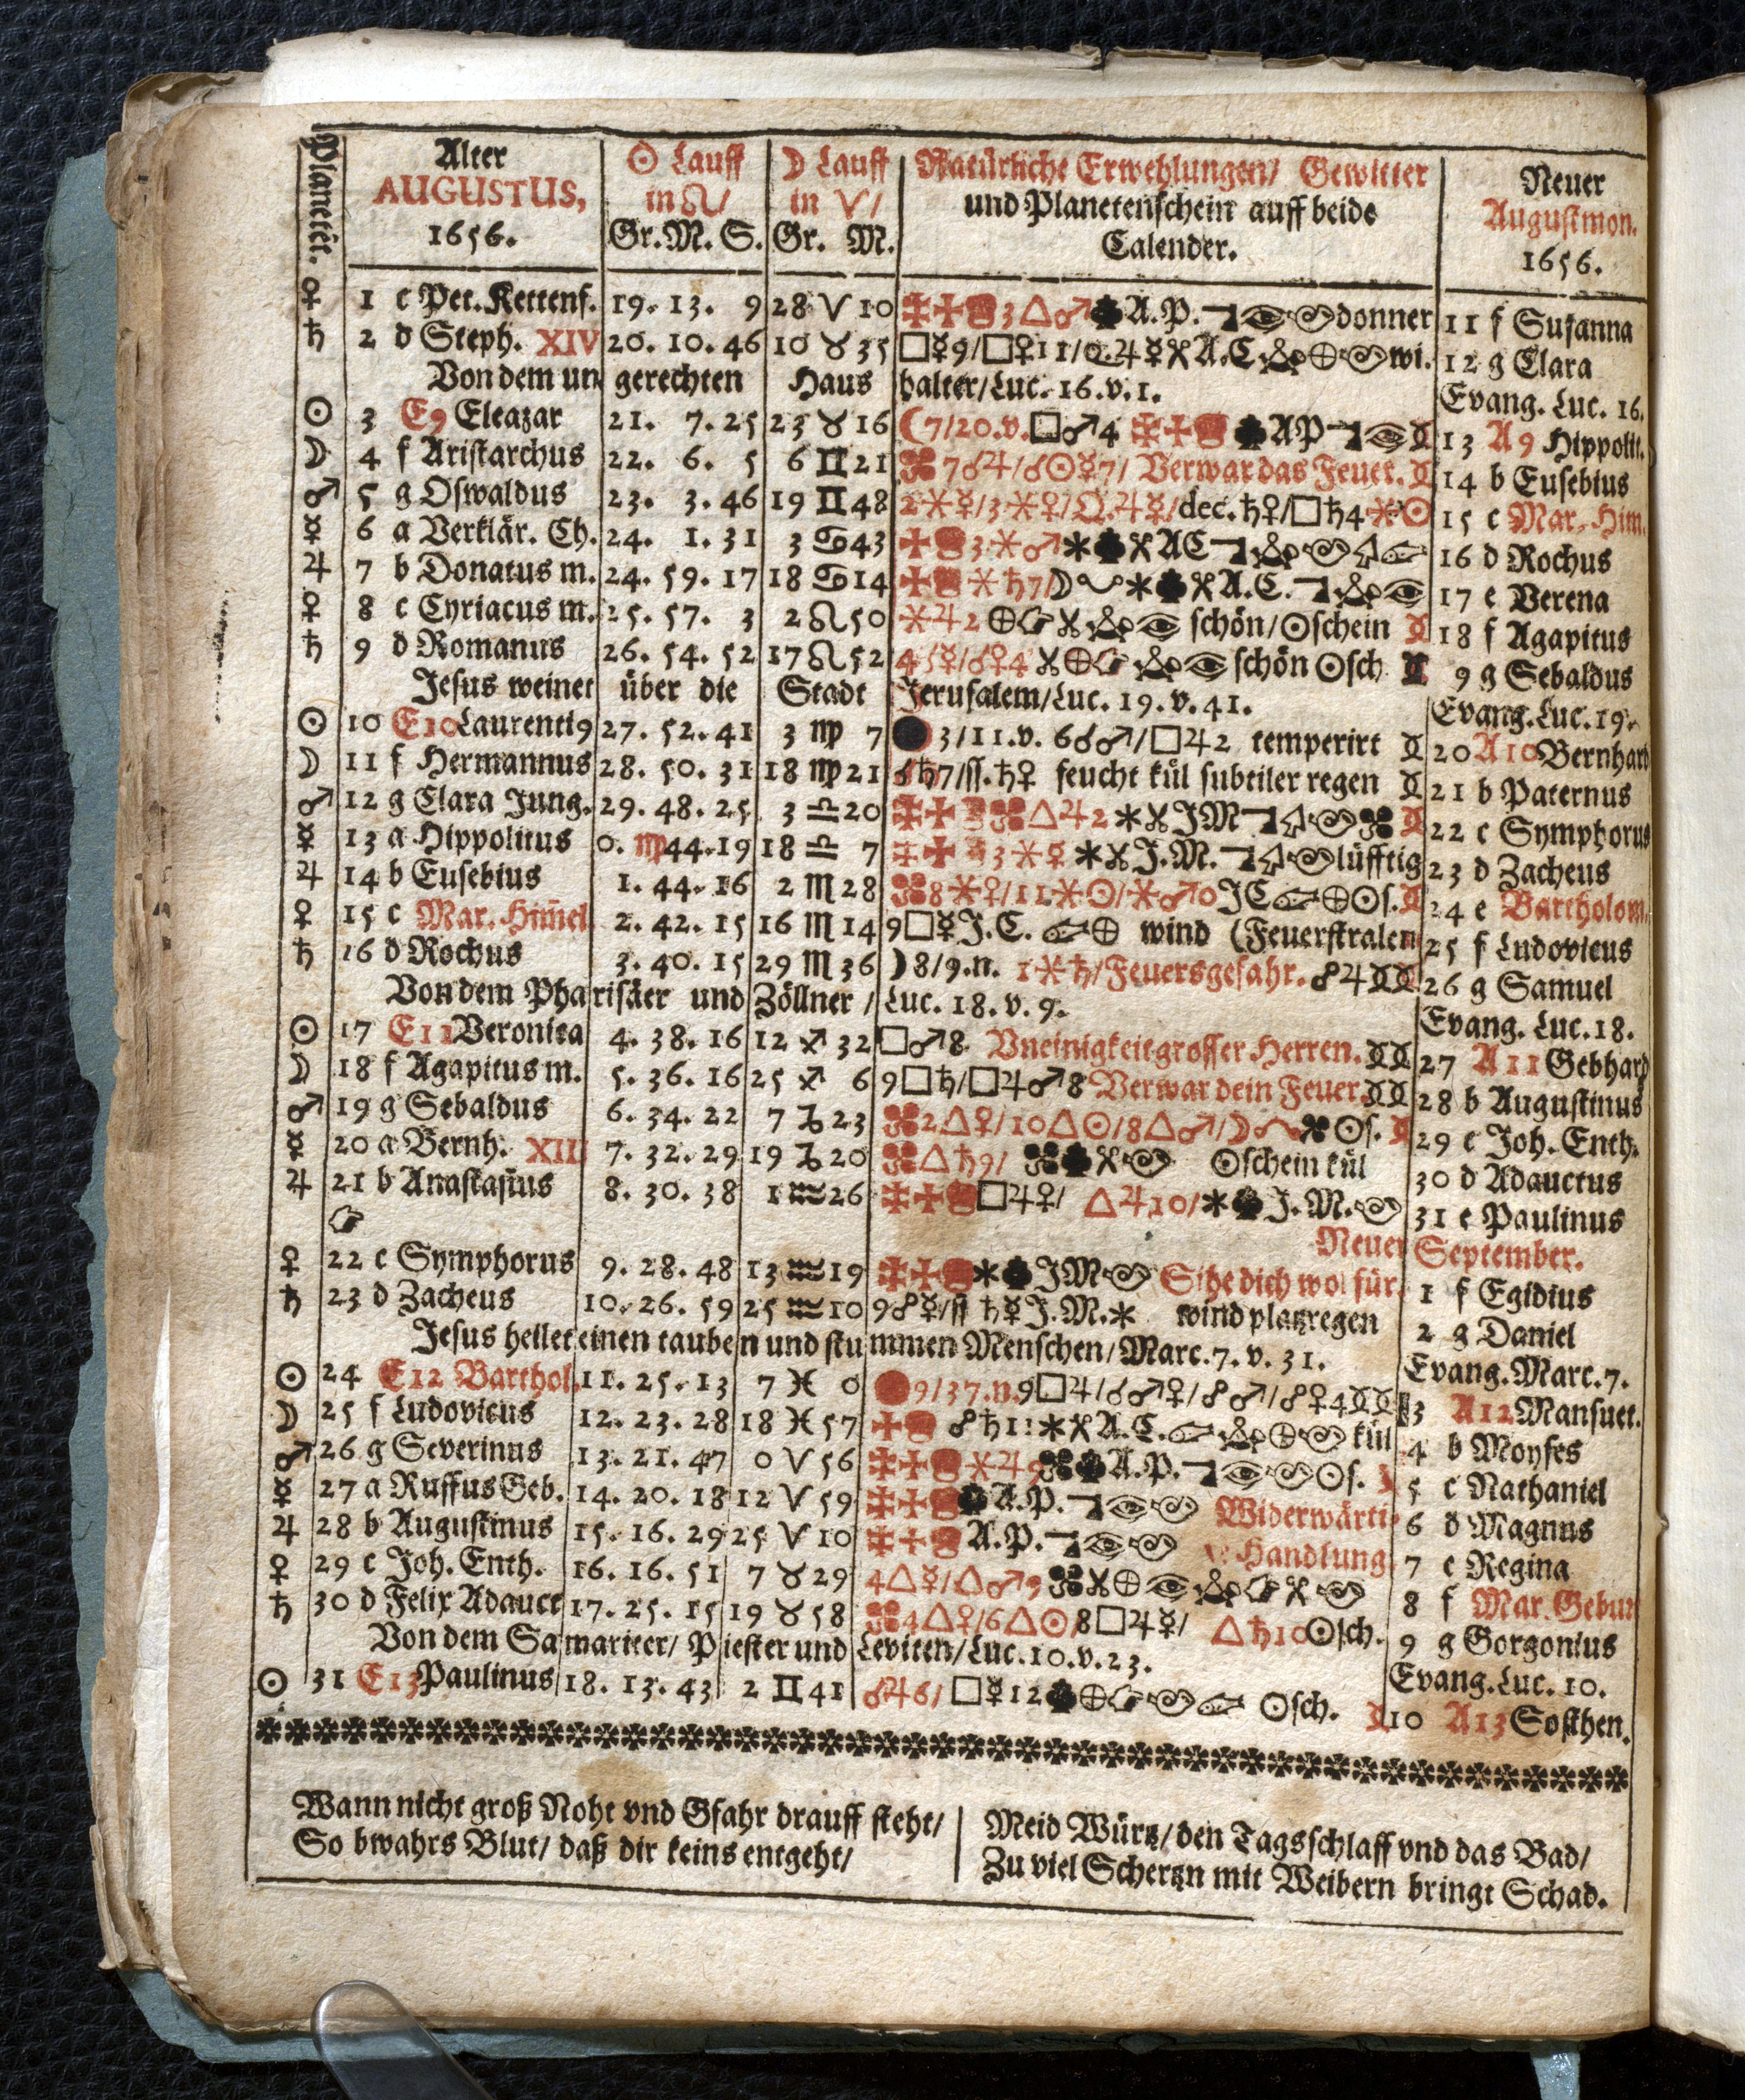 Planetē.
Alter
AUGUSTUS,
1656.
☉ Lauff
in ♌/
Gr. M. S.
☽ Lauff
in ♈/
Gr. M.
Natürliche Erwehlungen/ Gewitter
und Planetenschein auff beide
Calender.
Neuer
Augustmon.
1656.
♀ 1 c Pet. Kettenf. 19. 13. 9 28 ♈ 10 3 △ ♂ A. P. donner 11 f Susanna
♄ 2 d Steph. XIV 20. 10. 46 10 ♉ 35 □ ☿ 9/ □ ♀ 11/ ♃ ☿ A. C. wi. 12 g Clara
Von dem ungerechten Haushalter/ Luc. 16. v. 1. Evang. Luc. 16.
☉ 3 E9 Eleazar 21. 7. 25 23 ♉ 16 ☾ 7/20. v. □ ♂ 4 A P 13 A 9 Hippolit.
☽ 4 f Aristarchus 22. 6. 5 6 ♊ 21 7 ☌ ♃/ ☌ ☉ ☿ 7/ Verwar das Feuer. 14 b Eusebius
♂ 5 g Oswaldus 23. 3. 46 19 ♊ 48 2 ⚹ ☿/ 3 ⚹ ♀/ ♃ ☿/ dec. ♄ ♀/ □ ♄ 4 ⚹ ☉ 15 c Mar. Him.
☿ 6 a Verklär. Ch. 24. 1. 31 3 ♋ 43 3 ⚹ ♂ A C 16 d Rochus
♃ 7 b Donatus m. 24. 59. 17 18 ♋ 14 ⚹ ♄ 7/ ☽ A. C. 17 e Verena
♀ 8 c Cyriacus m. 25. 57. 3 2 ♌ 50 ⚹ ♃ 2 schön/ ☉schein 18 f Agapitus
♄ 9 d Romanus 26. 54. 52 17 ♌ 52 ☿/ ☌ ♀ 4 schön ☉sch 9 g Sebaldus
Jesus weinet über die Stadt Jerusalem/ Luc. 19. v. 41. Evang. Luc. 19.
☉ 10 E10 Laurenti9 27. 52. 41 3 ♍ 7 ● 3/11. v. 6 ☌ ♂/ □ ♃ 2 temperirt 20 A10 Bernhard
☽ 11 f Hermannus 28. 50. 31 18 ♍ 21 ☌ ♄ 7/ ſſ. ♄ ♀ feucht kül subtiler regen 21 b Paternus
♂ 12 g Clara Jung. 29. 48. 25 3 ♎ 20 △ ♃ 2 J M 22 c Symphorus
☿ 13 a Hippolitus 0. ♍ 44. 19 18 ♎ 7 3 ⚹ ☿ J. M. lüfftig 23 d Zacheus
♃ 14 b Eusebius 1. 44. 16 2 ♏ 28 8 ⚹ ♀/ 11 ⚹ ☉/ ⚹ ♂ 0 J C ☉s. 24 e Bartholom.
♀ 15 c Mar. Him̄el 2. 42. 15 16 ♏ 14 9 □ ☿ J. C. wind (Feuerstralen 25 f Ludovicus
♄ 16 d Rochus 3. 40. 15 29 ♏ 36 ☽ 8/9. n. 1 ⚹ ♄/ Feuersgefahr. ☍ ♃ 26 g Samuel
Von dem Pharisäer und Zöllner/ Luc. 18. v. 9. Evang. Luc. 18.
☉ 17 E11 Veronica 4. 38. 16 12 ♐ 32 □ ♂ 8. Vneinigkeit grosser Herren. 27 A11 Gebhard
☽ 18 f Agapitus m. 5. 36. 16 25 ♐ 6 9 □ ♄/ □ ♃ ♂ 8 Verwar dein Feuer 28 b Augustinus
♂ 19 g Sebaldus 6. 34. 22 7 ♑ 23 2 △ ♀/ 10 △ ☉/ 8 △ ♂/ ☽ ☉s. 29 c Joh. Enth.
☿ 20 a Bernh. XII 7. 32. 29 19 ♑ 20 △ ♄ 9/ ☉schein kül 30 d Adauctus
♃ 21 b Anastasius 8. 30. 38 1 ♒ 26 □ ♃ ♀/ △ ♃ 10/ J. M. 31 e Paulinus
Neuer September.
♀ 22 c Symphorus 9. 28. 48 13 ♒ 19 J M Sihe dich wol für. 1 f Egidius
♄ 23 d Zacheus 10. 26. 59 25 ♒ 10 9 ☍ ☿/ ſſ ♄ ☿ J. M. wind platzregen 2 g Daniel
Jesus heilet einen tauben und stummen Menschen/ Marc. 7. v. 31. Evang. Marc. 7.
☉ 24 E12 Barthol. 11. 25. 13 7 ♓ 0 9/37. n. 9 □ ♃/ ☌ ♂ ♀/ ☍ ♂/ ☍ ♀ 4 3 A12 Mansuet.
☽ 25 f Ludovicus 12. 23. 28 18 ♓ 57 ☍ ♄ A. C. kül 4 b Moyses
♂ 26 g Severinus 13. 21. 47 0 ♈ 56 ⚹ ♃ 9 A. P. ☉s. 5 c Nathaniel
☿ 27 a Ruffus Geb. 14. 20. 18 12 ♈ 59 A. P. Widerwärti- 6 d Magnus
♃ 28 b Augustinus 15. 16. 29 25 ♈ 10 A. P. Handlung. 7 e Regina
♀ 29 c Joh. Enth. 16. 16. 51 7 ♉ 29 4 △ ☿/ △ ♂ 9 8 f Mar. Gebur
♄ 30 d Felix Adauct 17. 25. 15 19 ♉ 58 4 △ ♀/ 6 △ ☉ 8 □ ♃ ☿/ △ ♄ 10 ☉sch. 9 g Gorgonius
Von dem Samariter/ Priester und Leviten/ Luc. 10. v. 23. Evang. Luc. 10.
☉ 31 E13 Paulinus 18. 13. 43 2 ♊ 41 ☌ ♃ 6/ □ ☿ 12 ☉sch. 10 A13 Sosthen.
Wann nicht groß Noht vnd Gfahr drauff steht/
So bwahrs Blut/ daß dir keins entgeht/
Meid Würtz/ den Tagsschlaff vnd das Bad/
Zu viel Schertzn mit Weibern bringt Schad.